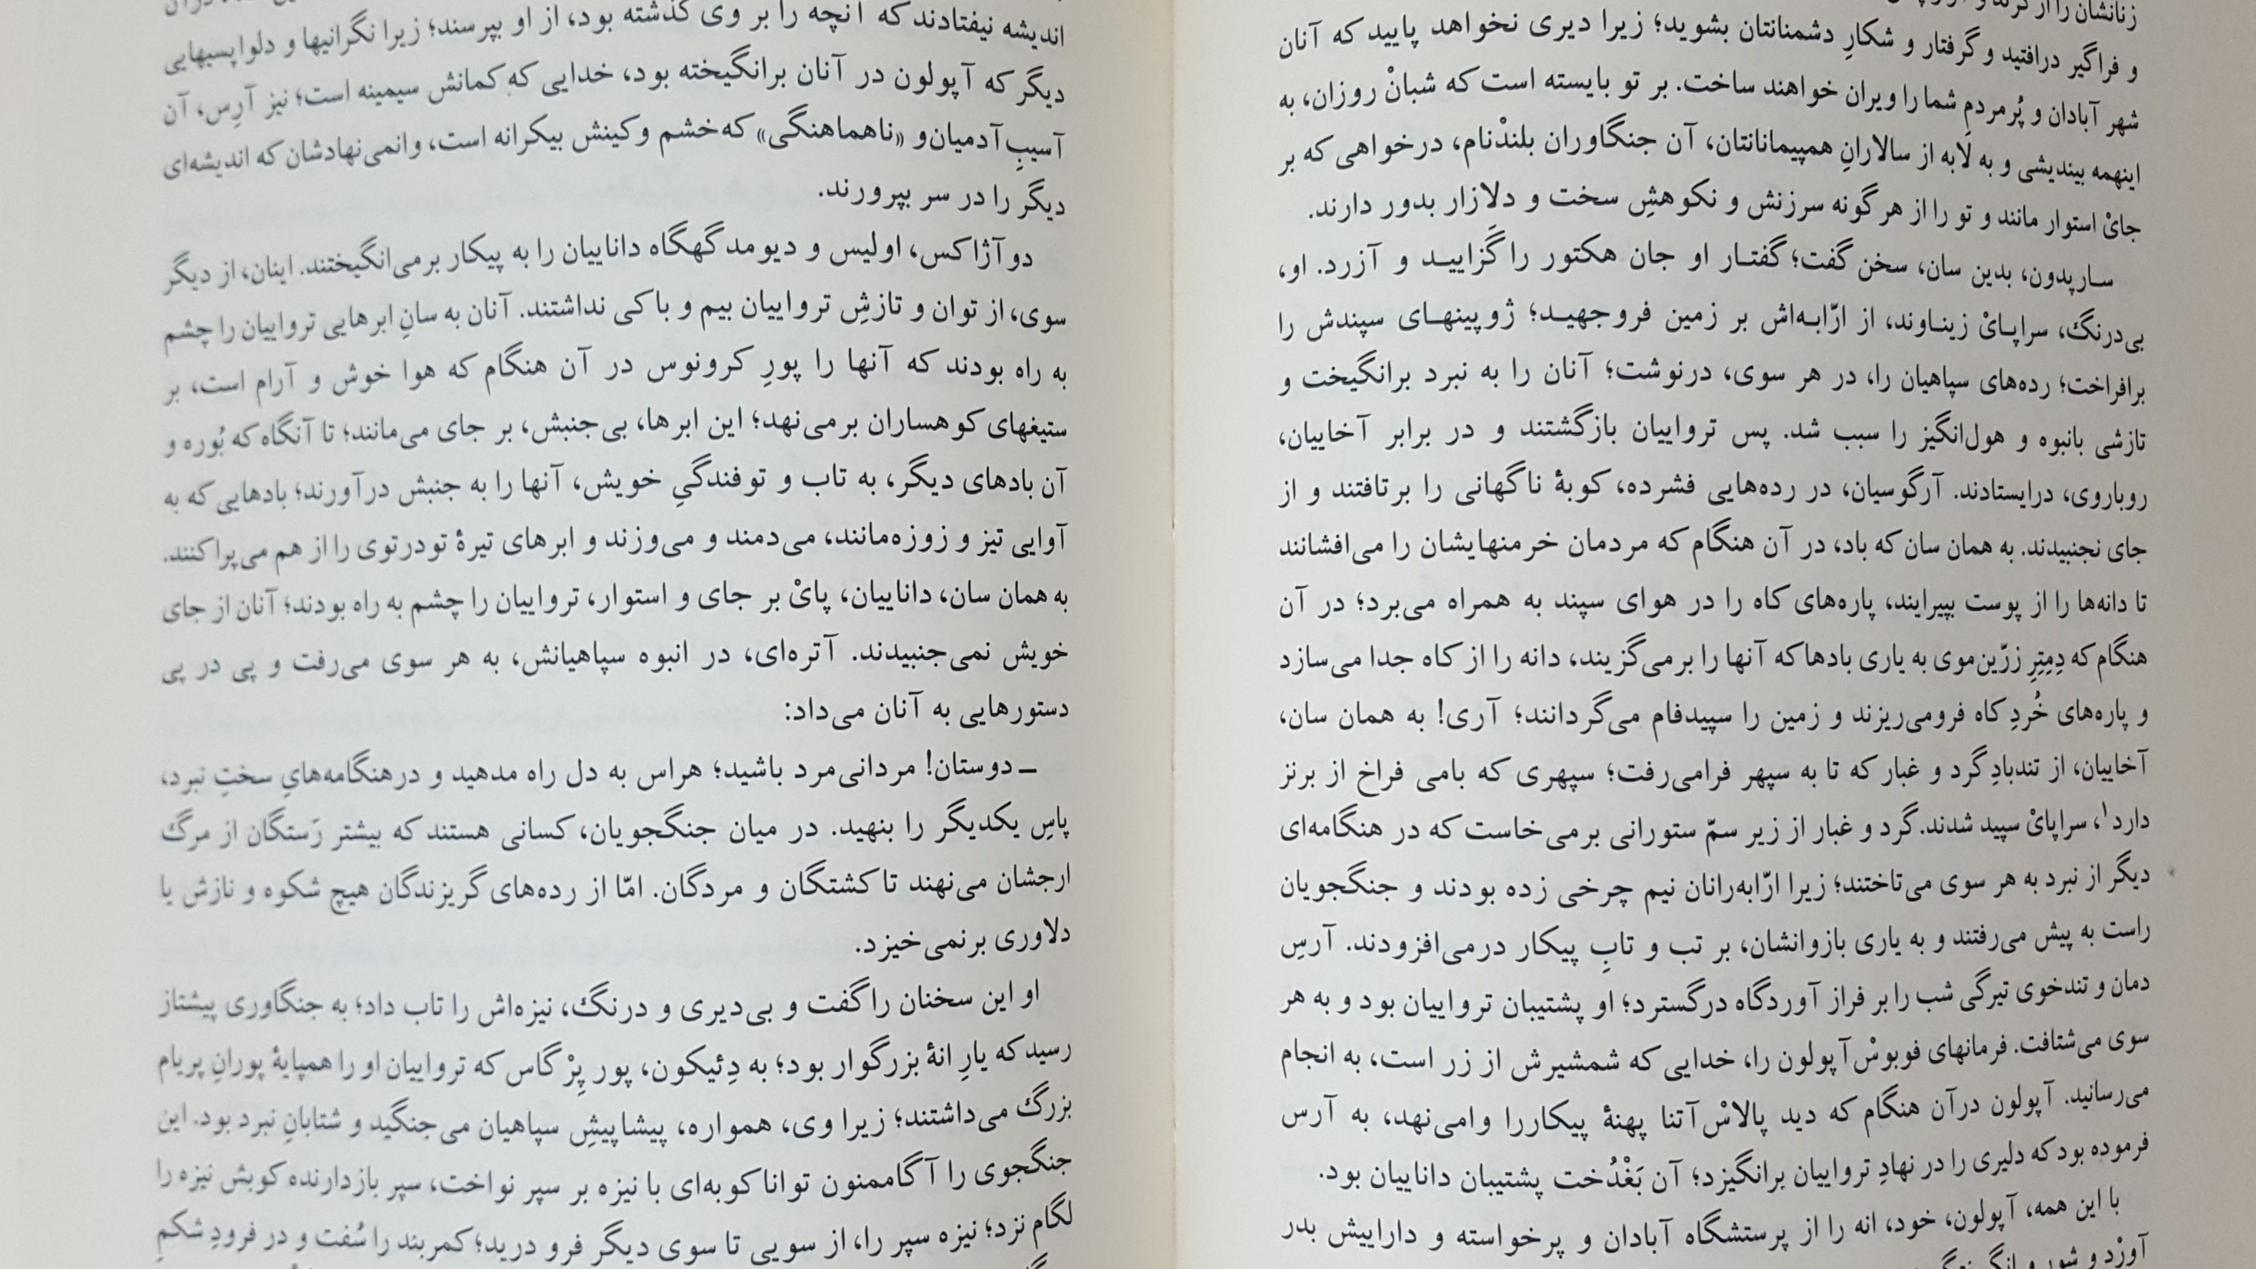 زنانشان را از
و فراگیر درافتید و گرفتار و شکارِ دشمنانتان بشوید؛ زیرا دیری نخواهد پایید که آنان
شهر آبادان و پُرمردمِ شما را ویران خواهند ساخت. بر تو بایسته است که شبانْ روزان، به
اینهمه بیندیشی و به لَابه از سالارانِ همپیمانانتان، آن جنگاوران بلندْنام، درخواهی که بر
جایْ استوار مانند و تو را از هر گونه سرزنش و نکوهشِ سخت و دلازار بدور دارند.
سارپدون، بدین سان، سخن گفت؛ گفتار او جان هکتور را گَزایید و آزرد. او،
بی‌درنگ، سراپایْ زیناوند، از ارّابه‌اش بر زمین فروجهید؛ ژوپینهای سپندش را
برافراخت؛ رده‌های سپاهیان را، در هر سوی، درنوشت؛ آنان را به نبرد برانگیخت و
تازشی بانبوه و هول‌انگیز را سبب شد. پس ترواییان بازگشتند و در برابر آخاییان،
روباروی، درایستادند. آرگوسیان، در رده‌هایی فشرده، کوبهٔ ناگهانی را برتافتند و از
جای نجنبیدند. به همان سان که باد، در آن هنگام که مردمان خرمنهایشان را می‌افشانند
تا دانه‌ها را از پوست بپیرایند، پاره‌های کاه را در هوای سپند به همراه می‌برد؛ در آن
هنگام که دِمِتِرِ زرّین‌موی به یاری بادها که آنها را برمی‌گزیند، دانه را از کاه جدا می‌سازد
و پاره‌های خُردِ کاه فرومی‌ریزند و زمین را سپیدفام می‌گردانند؛ آری! به همان سان،
آخاییان، از تندبادِ گرد و غبار که تا به سپهر فرامی‌رفت؛ سپهری که بامی فراخ از برنز
دارد۱، سراپایْ سپید شدند. گرد و غبار از زیر سمّ ستورانی برمی‌خاست که در هنگامه‌ای
دیگر از نبرد به هر سوی می‌تاختند؛ زیرا ارّابه‌رانان نیم چرخی زده بودند و جنگجویان
راست به پیش می‌رفتند و به یاری بازوانشان، بر تب و تابِ پیکار درمی‌افزودند. آرسِ
دمان و تندخوی تیرگی شب را بر فراز آوردگاه درگسترد؛ او پشتیبان ترواییان بود و به هر
سوی می‌شتافت. فرمانهای فوبوسْ آپولون را، خدایی که شمشیرش از زر است، به انجام
می‌رسانید. آپولون درآن هنگام که دید پالاسْ آتنا پهنهٔ پیکاررا وامی‌نهد، به آرس
فرموده بود که دلیری را در نهادِ ترواییان برانگیزد؛ آن بَغْدُخت پشتیبان داناییان بود.
با این همه، آپولون، خود، انه را از پرستشگاه آبادان و پرخواسته و داراییش بدر
آورْد و شور و
اندیشه نیفتادند که آنچه را بر وی گذشته بود، از او بپرسند؛ زیرا نگرانیها و دلواپسیهایی
دیگر که آپولون در آنان برانگیخته بود، خدایی که کمانش سیمینه است؛ نیز آرِس، آن
آسیبِ آدمیان و «ناهماهنگی» که خشم و کینش بیکرانه است، وانمی‌نهادشان که اندیشه‌ای
دیگر را در سر بپرورند.
دو آژاکس، اولیس و دیومد گهگاه داناییان را به پیکار برمی‌انگیختند. اینان، از دیگر
سوی، از توان و تازشِ ترواییان بیم و باکی نداشتند. آنان به سانِ ابرهایی ترواییان را چشم
به راه بودند که آنها را پورِ کرونوس در آن هنگام که هوا خوش و آرام است، بر
ستیغهای کوهساران برمی‌نهد؛ این ابرها، بی‌جنبش، بر جای می‌مانند؛ تا آنگاه که بُوره و
آن بادهای دیگر، به تاب و توفندگیِ خویش، آنها را به جنبش درآورند؛ بادهایی که به
آوایی تیز و زوزه‌مانند، می‌دمند و می‌وزند و ابرهای تیرهٔ تودرتوی را از هم می‌پراکنند.
به همان سان، داناییان، پایْ بر جای و استوار، ترواییان را چشم به راه بودند؛ آنان از جای
خویش نمی‌جنبیدند. آتره‌ای، در انبوه سپاهیانش، به هر سوی می‌رفت و پی در پی
دستورهایی به آنان می‌داد:
ـ دوستان! مردانی‌مرد باشید؛ هراس به دل راه مدهید و درهنگامه‌هایِ سختِ نبرد،
پاسِ یکدیگر را بنهید. در میان جنگجویان، کسانی هستند که بیشتر رَستگان از مرگ
ارجشان می‌نهند تا کشتگان و مردگان. امّا از رده‌های گریزندگان هیچ شکوه و نازش یا
دلاوری برنمی‌خیزد.
او این سخنان را گفت و بی‌دیری و درنگ، نیزه‌اش را تاب داد؛ به جنگاوری پیشتاز
رسید که یارِ انهٔ بزرگوار بود؛ به دِئیکون، پور پِرْگاس که ترواییان او را همپایهٔ پورانِ پریام
بزرگ می‌داشتند؛ زیرا وی، همواره، پیشاپیشِ سپاهیان می‌جنگید و شتابانِ نبرد بود. این
جنگجوی را آگاممنون توانا کوبه‌ای با نیزه بر سپر نواخت، سپر بازدارنده کوبش نیزه را
لگام نزد؛ نیزه سپر را، از سویی تا سوی دیگر فرو درید؛ کمربند را سُفت و در فرودِ شکمِ